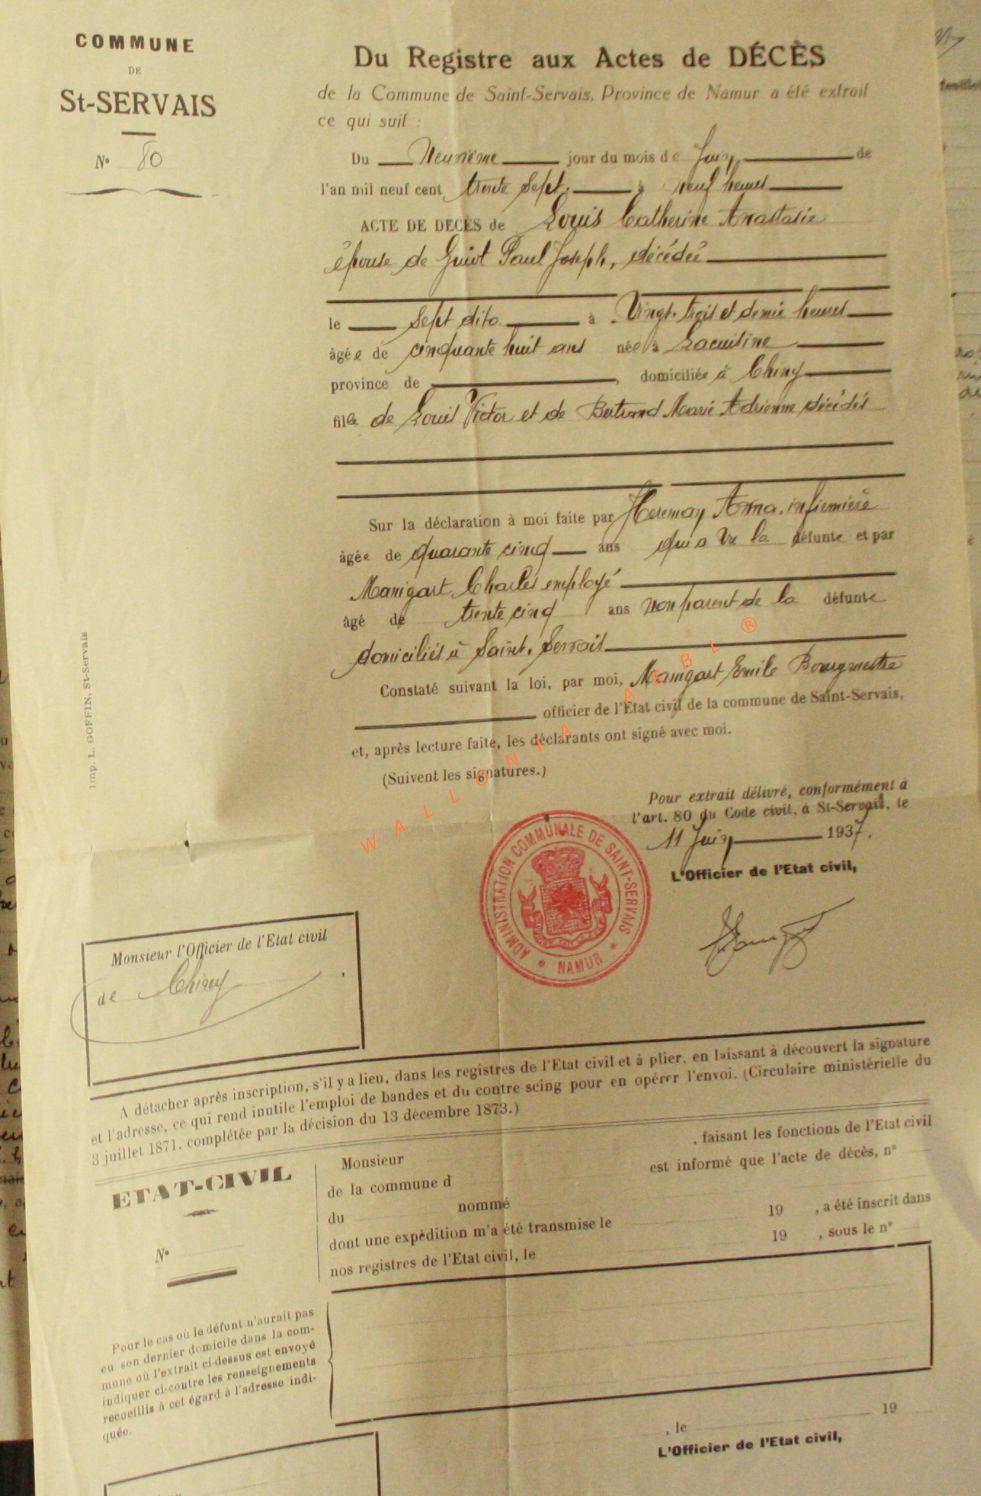 COMMUNE
DE
St-SERVAIS
N° 80
Du Registre aux Actes de DÉCÈS
de la Commune de Saint-Servais, Province de Namur a été extrait
ce qui suit :
Du Neuvième jour du mois de Juin de
l'an mil neuf cent trente sept à neuf heures
ACTE DE DECÈS de Louis Catherine Anastasie
épouse de Guiot Paul Joseph, décédée
le sept dito à Vingt-trois et demie heures
âgée de cinquante huit ans née à Lacuisine
province de , domiciliée à Chiny
fille de Louis Victor et de Bertrand Marie Adrienne décédés
Sur la déclaration à moi faite par Anna, infirmière
âgée de quarante cinq ans qui a vu la défunte et par
Manigart Charles employé
âgé de trente cinq ans non parent de la défunte
domiciliés à Saint-Servais
Constaté suivant la loi, par moi, Manigart Emile Bourgmestre
officier de l'État civil de la commune de Saint-Servais,
et, après lecture faite, les déclarants ont signé avec moi.
(Suivent les signatures.)
Pour extrait délivré, conformément à
l'art. 80 du Code civil, à St-Servais, le
11 Juin 1937.
L'Officier de l'Etat civil,
ADMINISTRATION COMMUNALE DE SAINT-SERVAIS
NAMUR
WALLONIA ASBL ®
Imp. L. GOFFIN, St-Servais
Monsieur l'Officier de l'Etat civil
de Chiny
A détacher après inscription, s'il y a lieu, dans les registres de l'Etat civil et à plier, en laissant à découvert la signature
et l'adresse, ce qui rend inutile l'emploi de bandes et du contre seing pour en opérer l'envoi. (Circulaire ministérielle du
3 juillet 1871, complétée par la décision du 13 décembre 1873.)
ETAT-CIVIL
N°
Monsieur , faisant les fonctions de l'Etat civil
de la commune d est informé que l'acte de décès, n°
du nommé
dont une expédition m'a été transmise le 19 , a été inscrit dans
nos registres de l'Etat civil, le 19 , sous le n°
Pour le cas où le défunt n'aurait pas
eu son dernier domicile dans la com-
mune où l'extrait ci-dessus est envoyé
indiquer ci-contre les renseignements
recueillis à cet égard à l'adresse indi-
quée.
, le 19
L'Officier de l'Etat civil,